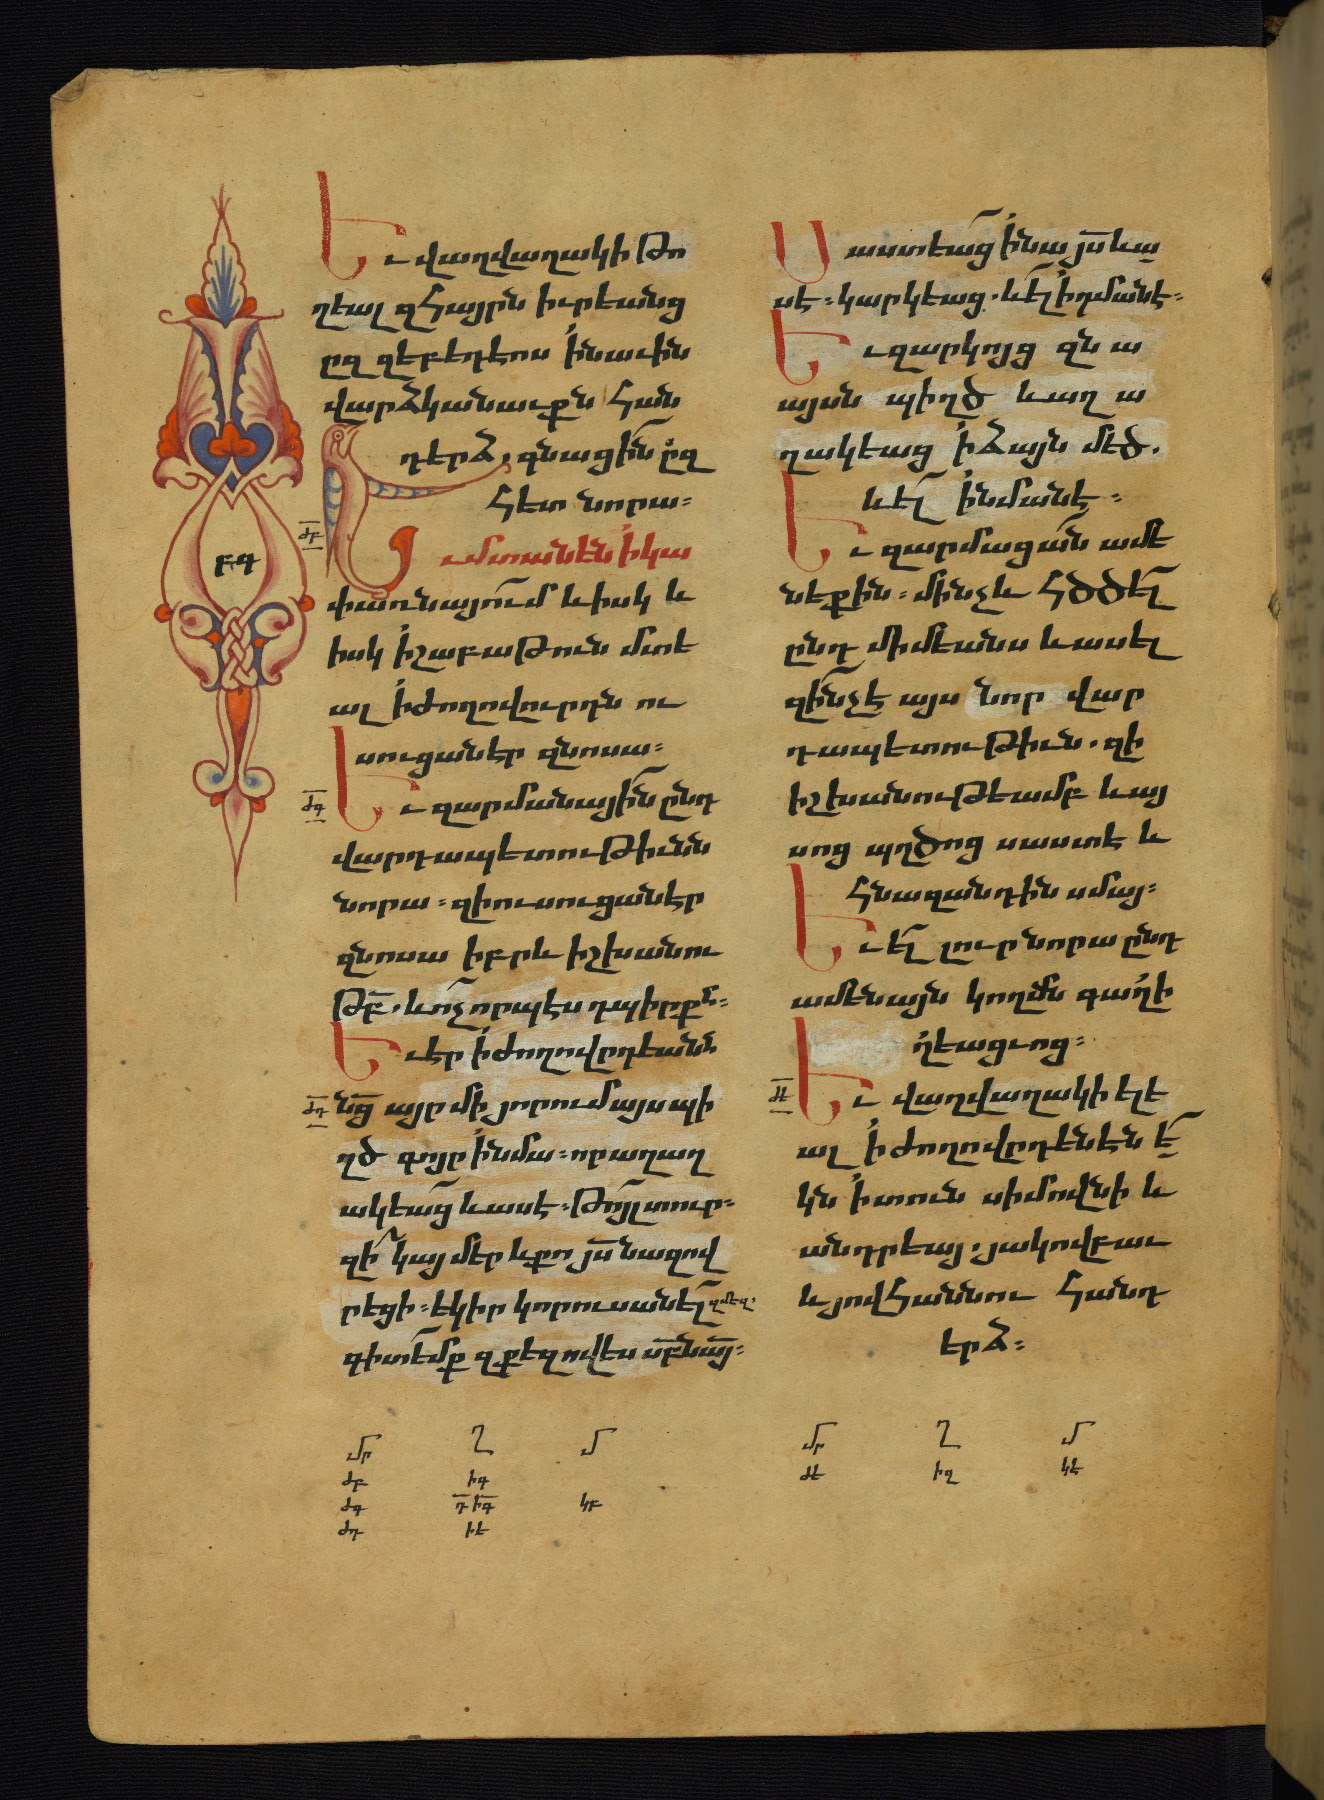 Եւ վաղվաղակի թո
ղեալ զհայրն իւրեանց
ըզ զեբեդէոս ինաւին
վարձկանաւքն հան
դերձ. գնացին ըզ
հետ նորա։
ժբ
Եւ մտանեն ի կա
փառնայում և իսկ և
իսկ ի շաբաթուն մտե
ալ ի ժողովուրդն ու
սուցաներ զնոսա։
ժգ
Եւ զարմանային ընդ
վարդապետութիւնն
նորա։ զի ուսուցաներ
զնոսա իբրև իշխանու
թբ. և ոչ որպէս դպիրքն։
Եւ էր ի ժողովրդեանն
ժդ
նց այր մի յորում այս պի
ղծ գոյր ի նմա։ որ աղաղ
ակեաց և ասէ։ թոյլ տուր։
զի կայ մեր և քո յս նազով
րեցի։ եկիր կորուսանել զմեզ.
գիտեմք զքեզ ով ես սբն այ։
բգ
Սաստեաց ի նա յս և ա
սէ։ կարկեաց. և ել ի դմանէ։
Եւ զարկոյց զն ա
այսն պիղծ և աղ ա
ղակեաց ի ձայն մեծ.
և ել ի նմանէ։
Եւ զարմացան ամե
նեքին։ մինչև հծծել
ընդ միմեանս և ասել
զինչ է այս նոր վար
դապետութիւն. զի
իշխանութեամբ և այ
սոց պղծոց սաստէ և
հնազանդին սմայ։
Եւ ել լուր նորա ընդ
ամենայն կողմն գաղի
ղեացւոց։
ժե
Եւ վաղվաղակի ելե
ալ ի ժողովրդենեն ե
կն ի տուն սիմովնի և
անդրեայ. յակովբաւ
և յովհաննու հանդ
երձ։
մր Ղ մ
ժբ իգ
ժգ դ իգ կբ
ժդ իե
մր Ղ մ
ժե իզ կե